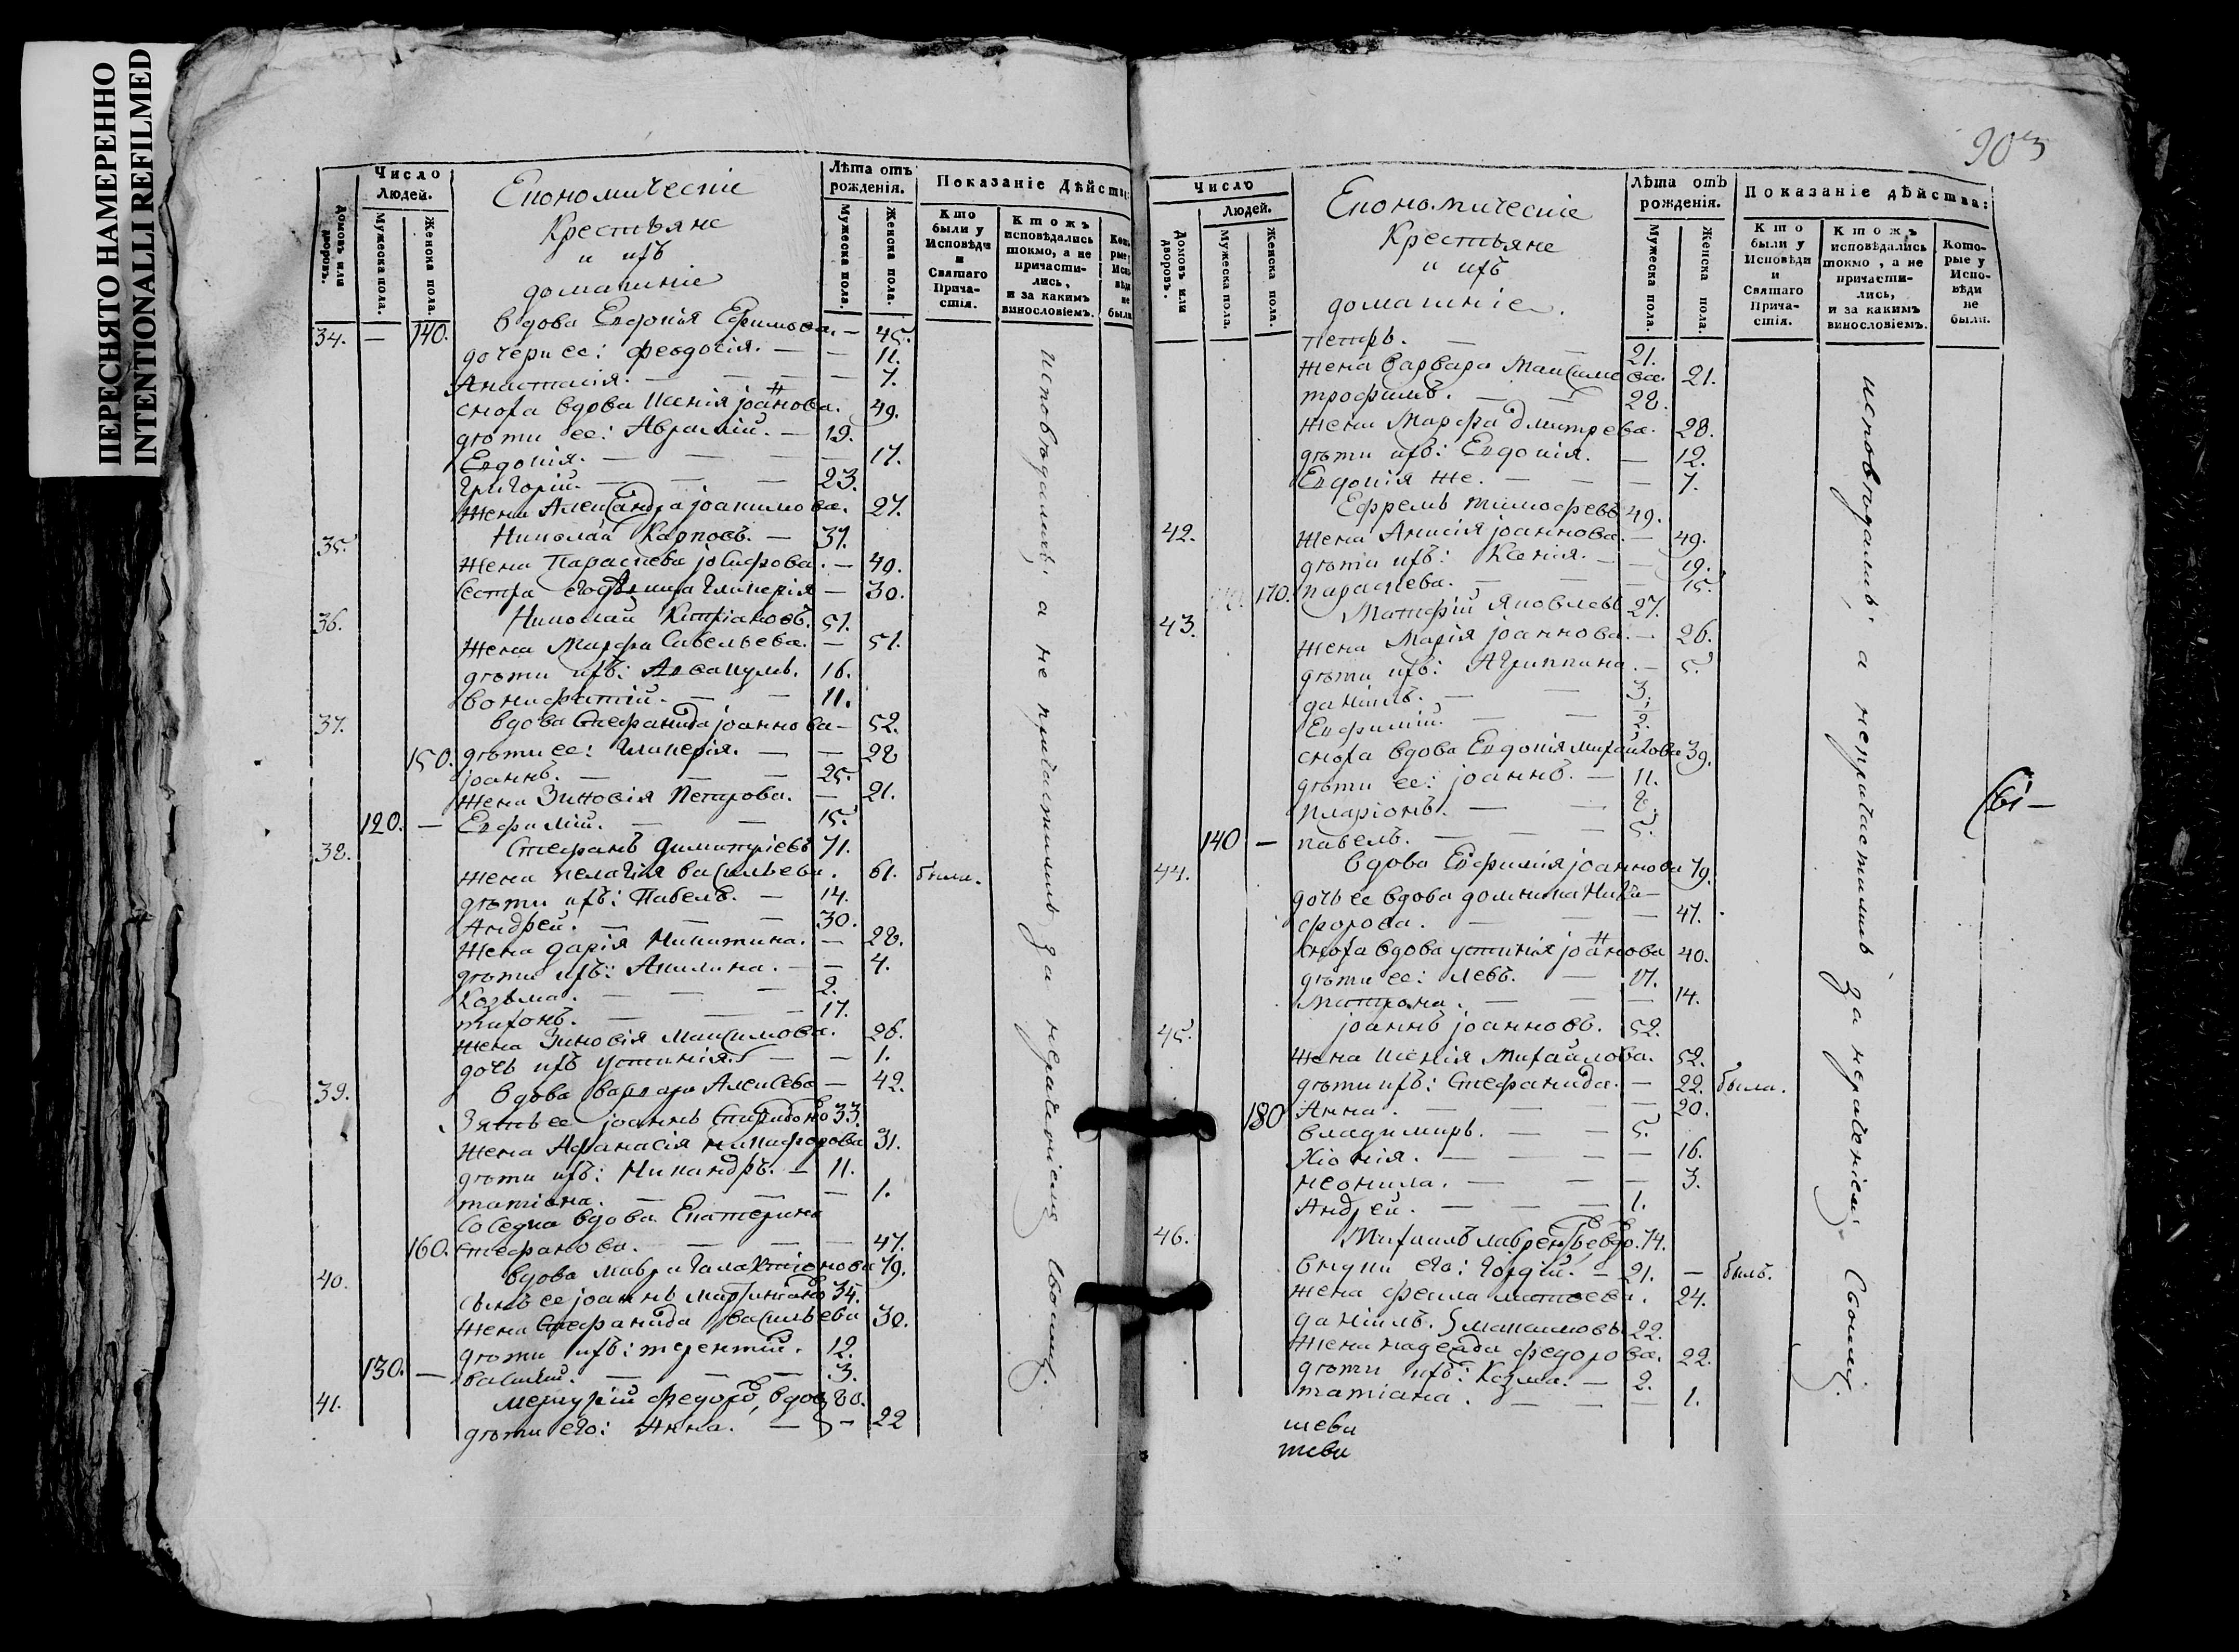 ПЕРЕСНЯТО НАМЕРЕННО
INTENTIONALLI REFILMED
Число
Людей.
Домовъ или дворовъ.
Мужеска пола.
Женска пола.
Економическіе
Крестьяне
и ихъ
домашніе
Лѣта отъ рожденія.
Мужеска пола.
Женска пола.
Показаніе Дѣйства:
Кто были у Исповѣди и Святаго Прича-стія.
Ктожъ исповѣдались токмо, а не причасти-лись, и за какимъ винословіемъ.
34. — 140. вдова Евдокія Ефимова. — 45.
дочери ее: Феодосія. — — 11.
Анастасія. — — — 7.
сноха вдова Ксенія Іоаннова. 49.
дѣти ее: Авраамій. — 19.
Евдокія. — — — 17.
Григорій. — — 23.
жена Александра Іоакимова. 27.
35. Николай Карповъ. — 37.
жена Параскева Іосифова. — 40.
сестра его Гликерія — 30.
36. Николай Кипріановъ. 51.
жена Марфа Савельева. — 51.
дѣти ихъ: Аввакумъ. 16.
Вонифатій. — — 11.
37. вдова Стефанида Іоаннова — 52.
150. дѣти ее: Гликерія. — — 28
Іоаннъ. — — — 25.
жена Зиновія Петрова. — 21.
120. — Евфимій. — — 15.
38. Стефанъ Димитріевъ 71.
жена Пелагія Васильева. 61. были.
дѣти ихъ: Павелъ. — 14.
Андрей. — — — 30.
жена Дарія Никитина. — 28.
дѣти ихъ: Акилина. — — 4.
Козьма. — — — 2.
Тихонъ. — — — 17.
жена Зиновія Максимова. 26.
дочь ихъ Устинія. — — 1.
39. вдова Варвара Алексева — 42.
Зять ее Іоаннъ Спиридоно 33.
жена Афанасія Никифорова 31.
дѣти ихъ: Никандръ. — 11.
Татіана. — — — 1.
Соседка вдова Екатерина
160. Стефанова. — — — 47.
40. вдова Мавра Галактіонова 79.
сынъ ее Іоаннъ 35.
жена Стефанида Васильева 30.
дѣти ихъ: Терентій. 12.
130. — Василій. — — — 3.
41. Меркурій Федоро, вдов 80.
дѣти его: Анна. — — 22
исповѣдались, а не причастились за нерачениемъ своимъ.
903
Число
Людей.
Домовъ или дворовъ.
Мужеска пола.
Женска пола.
Економическіе
Крестьяне
и ихъ
домашніе.
Лѣта отъ рожденія.
Мужеска пола.
Женска пола.
Показаніе дѣйства:
Кто были у Исповѣди и Святаго Прича-стія.
Ктожъ исповѣдались токмо, а не причасти-лись, и за какимъ винословіемъ.
Кото-рые у Испо-вѣди не были.
Петръ. — — 21.
жена Варвара Максимова. 21.
Трофимъ. — — 28.
жена Марфа Дмитрева. 28.
дѣти ихъ: Евдокія. — 12.
Евдокія же. — — — 7.
42. Ефремъ Тимофеевъ 49.
жена Анисія Іоаннова. — 49.
дѣти ихъ: Ксенія. — — 19.
170. Параскева. — — — 15.
43. Матфій Яковлевъ 27.
жена Марія Іоаннова. — 26.
дѣти ихъ: Агриппина. — 5.
Даніилъ. — — 3.
Евфимій. — — 2.
сноха вдова Евдокія Михайлова 39.
дѣти ее: Іоаннъ. — 11.
Иларіонъ. — — 8.
140 — Павелъ. — — — 5.
44. вдова Евфимія Іоаннова 79.
дочь ее вдова Домника Ники—
форова. — — — 47.
сноха вдова Устинія Іоаннова 40.
дѣти ее: Левъ. — 17.
Матрона. — — — 14.
45. Іоаннъ Іоанновъ. 52.
жена Ксенія Михайлова. 52.
дѣти ихъ: Стефанида. — 22. была.
180 Анна. — — — — 20.
Владимиръ. — — 5.
Хіонія. — — — — 16.
Неонила. — — — 3.
Андрей. — — — 1.
46. Михаилъ Лаврентьев вдо. 74.
внуки его: Гордій. — 21. — былъ.
жена Фекла Матвеева. 24.
Даніилъ. Максимовы 22.
жена Надежда Федорова. 22.
дѣти ихъ: Козма. — 2.
Татіана. — — — 1.
исповѣдались, а непричастились за нерачениемъ своимъ.